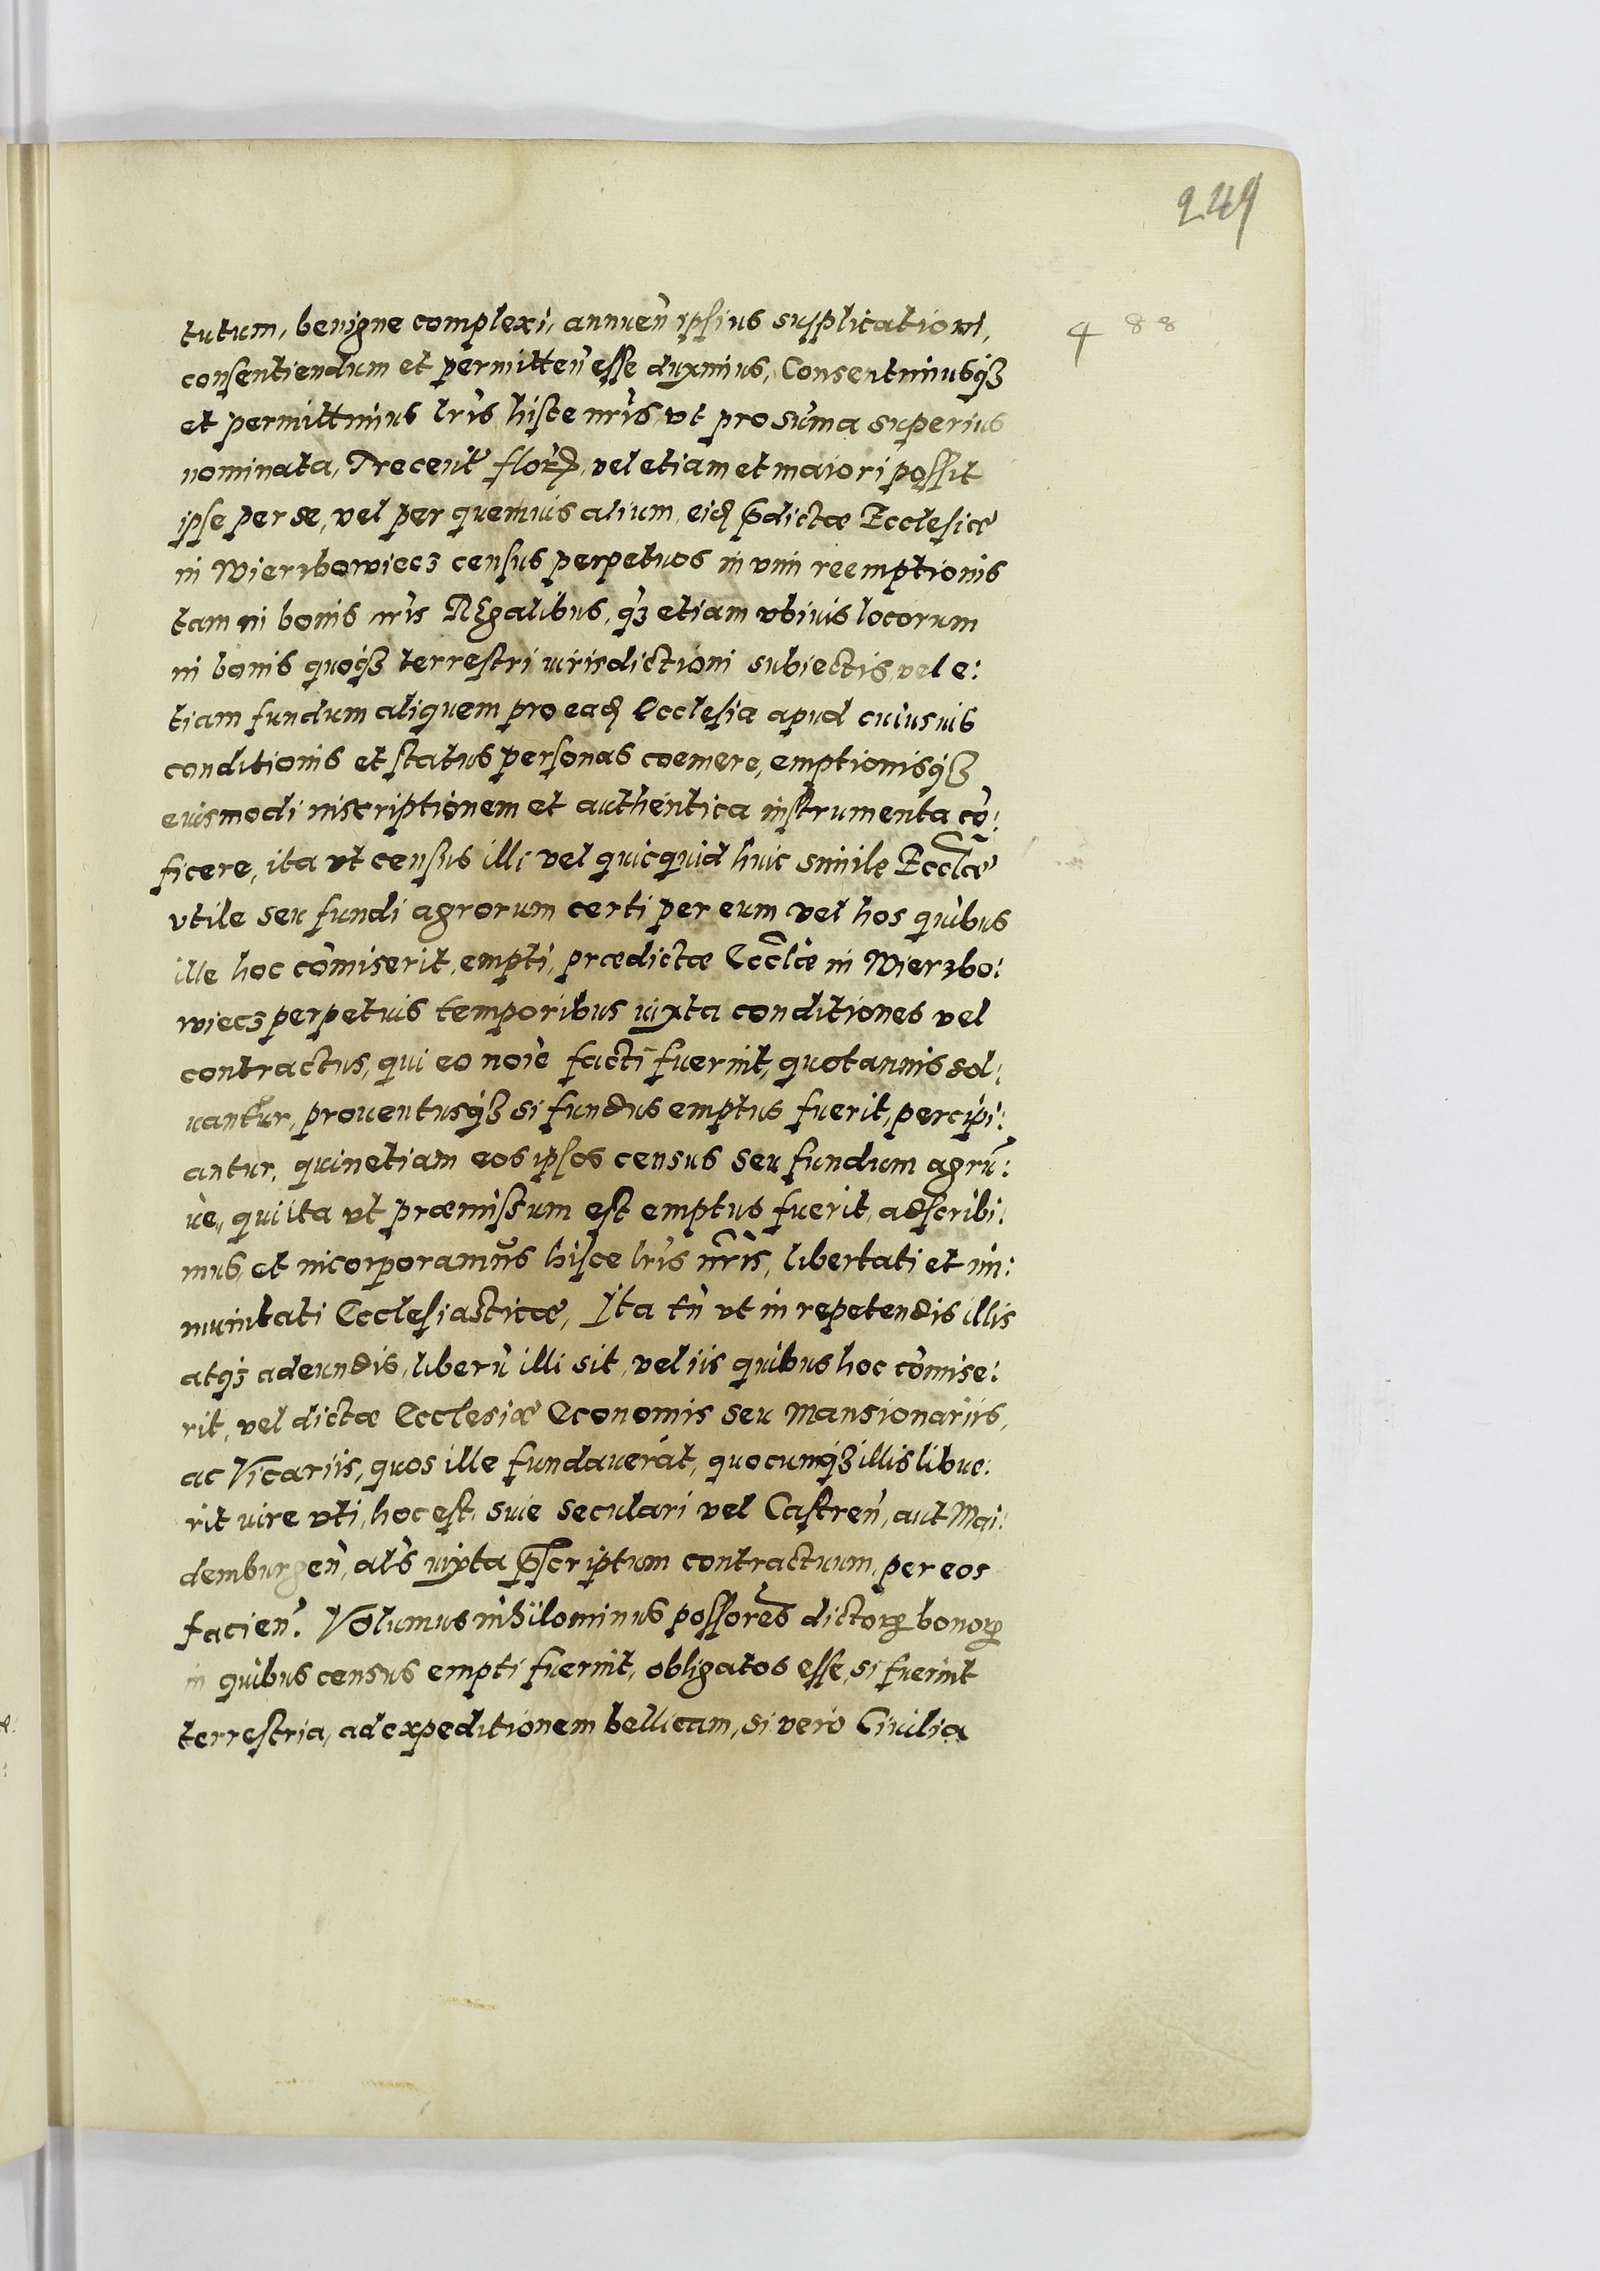 249
488
tutum, benigne complexi, annuen̄ ipsius supplicationi,
consentiendum et permitten̄ esse duximus, Consentimusq́ꝫ
et permittimus lr̄is hisce nr̄is, vt pro sum̄a superius
nominata, Trecent flor̄, vel etiam et maiori possit
ipse per se, vel per quemuis alium, eid p̄dictæ Ecclesiæ
in Wierzbowiecz census perpetuos in vim reemptionis
tam in bonis nr̄is Regalibus, q́ꝫ etiam vbiuis locorum
in bonis quoq́ꝫ terrestri iurisdictioni subiectis, vel e:
tiam fundum aliquem pro ead Ecclesia apud cuiusuis
conditionis et status personas coemere, emptionisq́ꝫ
eiusmodi inscriptionem et authentica instrumenta cō:
ficere, ita vt census illi vel quicquid huic simile Eccl̄æ
vtile seu fundi agrorum certi per eum vel hos quibus
ille hoc com̄iserit, empti, prædictæ Eccl̄æ in Wierzbo:
wiecz perpetuis temporibus iuxta conditiones vel
contractus, qui eo noīe facti fuerint, quotannis sol:
uantur, prouentusq́ꝫ si fundus emptus fuerit, percipi:
antur, quinetiam eos ipsos census seu fundum agrū:
ue, qui ita vt præmissum est emptus fuerit, adscribi:
mus, et incorporamus hisce lr̄is nr̄is, libertati et im:
munitati Ecclesiasticæ, Ita tn̄ vt in repetendis illis
atq́ꝫ adeundis, liberū illi sit, vel iis quibus hoc com̄ise:
rit, vel dictæ Ecclesiæ Economis seu Mansionariis,
ac Vicariis, quos ille fundauerat, quocumq́ꝫ illis libue:
rit iure vti, hoc est, siue seculari vel Castren̄, aut Mai:
demburgen̄, al̄s iuxta p̄scriptum contractuum, per eos
facien̄. Volumus nihilominus possores̄ dictoꝝ bonoꝝ
in quibus census empti fuerint, obligatos esse, si fuerint
terrestria, ad expeditionem bellicam, si vero Ciuilia